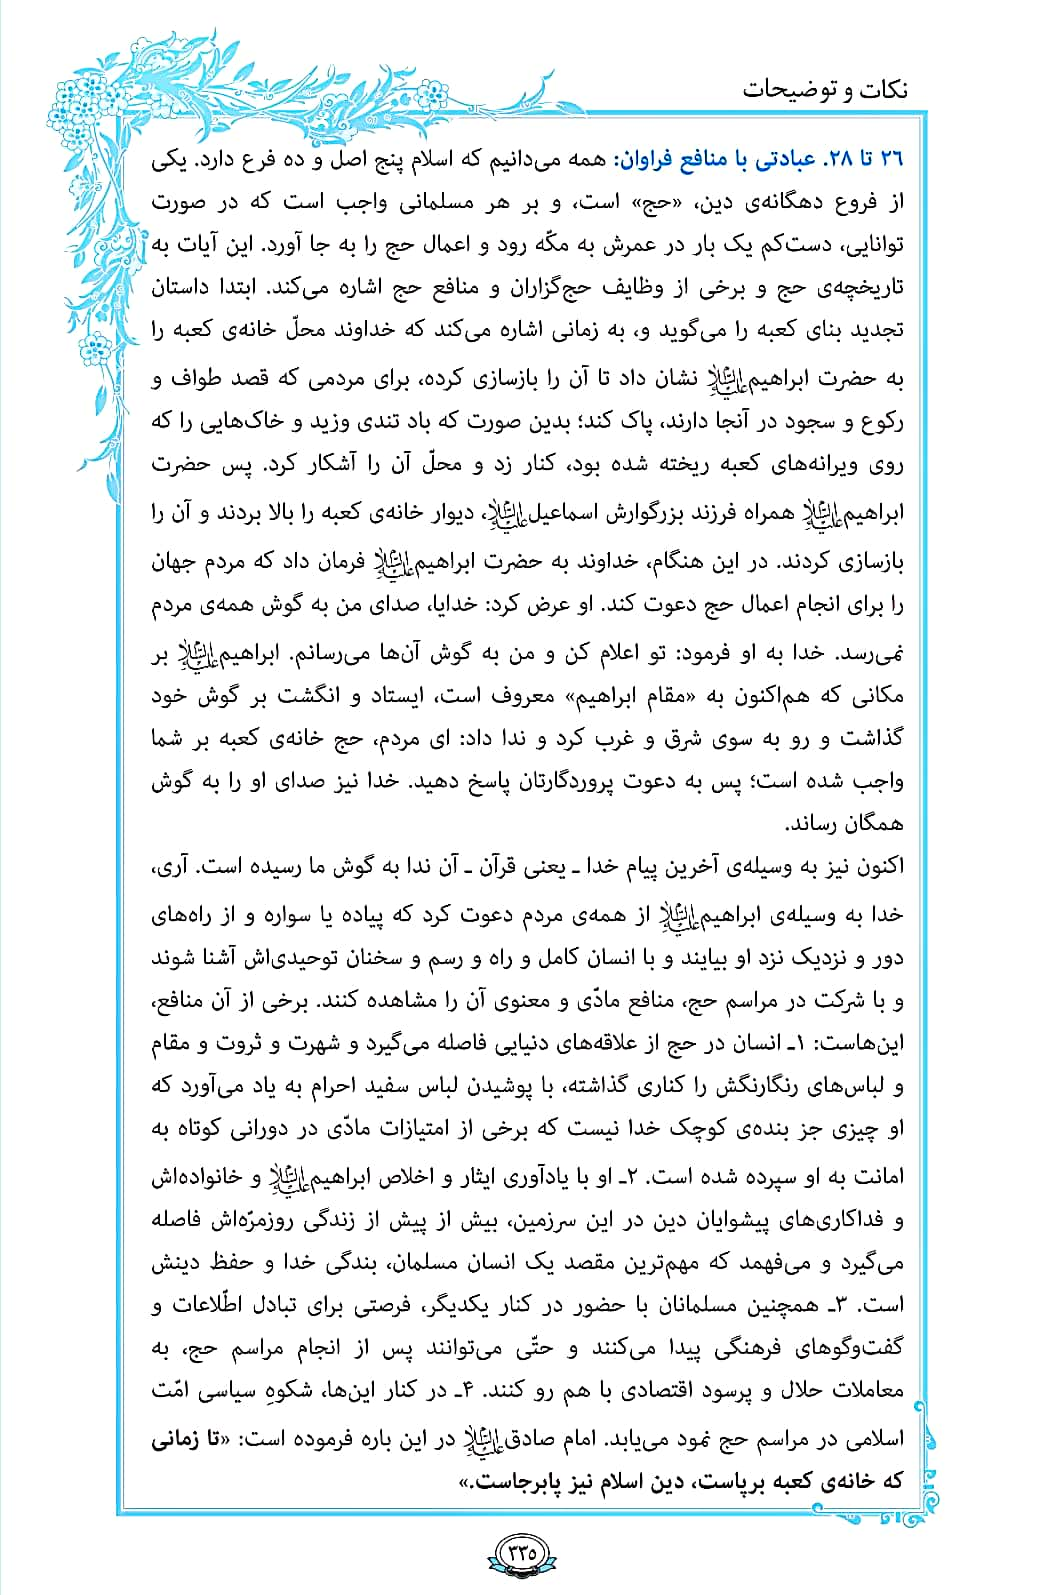 نکات و توضیحات
۲۶ تا ۲۸. عبادتی با منافع فراوان: همه می‌دانیم که اسلام پنج اصل و ده فرع دارد. یکی
از فروع دهگانه‌ی دین، «حج» است، و بر هر مسلمانی واجب است که در صورت
توانایی، دست‌کم یک بار در عمرش به مکّه رود و اعمال حج را به جا آورد. این آیات به
تاریخچه‌ی حج و برخی از وظایف حج‌گزاران و منافع حج اشاره می‌کند. ابتدا داستان
تجدید بنای کعبه را می‌گوید و، به زمانی اشاره می‌کند که خداوند محلّ خانه‌ی کعبه را
به حضرت ابراهیم علیه‌السلام نشان داد تا آن را بازسازی کرده، برای مردمی که قصد طواف و
رکوع و سجود در آنجا دارند، پاک کند؛ بدین صورت که باد تندی وزید و خاک‌هایی را که
روی ویرانه‌های کعبه ریخته شده بود، کنار زد و محلّ آن را آشکار کرد. پس حضرت
ابراهیم علیه‌السلام همراه فرزند بزرگوارش اسماعیل علیه‌السلام، دیوار خانه‌ی کعبه را بالا بردند و آن را
بازسازی کردند. در این هنگام، خداوند به حضرت ابراهیم علیه‌السلام فرمان داد که مردم جهان
را برای انجام اعمال حج دعوت کند. او عرض کرد: خدایا، صدای من به گوش همه‌ی مردم
نمی‌رسد. خدا به او فرمود: تو اعلام کن و من به گوش آن‌ها می‌رسانم. ابراهیم علیه‌السلام بر
مکانی که هم‌اکنون به «مقام ابراهیم» معروف است، ایستاد و انگشت بر گوش خود
گذاشت و رو به سوی شرق و غرب کرد و ندا داد: ای مردم، حج خانه‌ی کعبه بر شما
واجب شده است؛ پس به دعوت پروردگارتان پاسخ دهید. خدا نیز صدای او را به گوش
همگان رساند.
اکنون نیز به وسیله‌ی آخرین پیام خدا ـ یعنی قرآن ـ آن ندا به گوش ما رسیده است. آری،
خدا به وسیله‌ی ابراهیم علیه‌السلام از همه‌ی مردم دعوت کرد که پیاده یا سواره و از راه‌های
دور و نزدیک نزد او بیایند و با انسان کامل و راه و رسم و سخنان توحیدی‌اش آشنا شوند
و با شرکت در مراسم حج، منافع مادّی و معنوی آن را مشاهده کنند. برخی از آن منافع،
این‌هاست: ۱ـ انسان در حج از علاقه‌های دنیایی فاصله می‌گیرد و شهرت و ثروت و مقام
و لباس‌های رنگارنگش را کناری گذاشته، با پوشیدن لباس سفید احرام به یاد می‌آورد که
او چیزی جز بنده‌ی کوچک خدا نیست که برخی از امتیازات مادّی در دورانی کوتاه به
امانت به او سپرده شده است. ۲ـ او با یادآوری ایثار و اخلاص ابراهیم علیه‌السلام و خانواده‌اش
و فداکاری‌های پیشوایان دین در این سرزمین، بیش از پیش از زندگی روزمرّه‌اش فاصله
می‌گیرد و می‌فهمد که مهم‌ترین مقصد یک انسان مسلمان، بندگی خدا و حفظ دینش
است. ۳ـ همچنین مسلمانان با حضور در کنار یکدیگر، فرصتی برای تبادل اطّلاعات و
گفت‌وگوهای فرهنگی پیدا می‌کنند و حتّی می‌توانند پس از انجام مراسم حج، به
معاملات حلال و پرسود اقتصادی با هم رو کنند. ۴ـ در کنار این‌ها، شکوهِ سیاسی امّت
اسلامی در مراسم حج نمود می‌یابد. امام صادق علیه‌السلام در این باره فرموده است: «تا زمانی
که خانه‌ی کعبه برپاست، دین اسلام نیز پابرجاست.»
۳۳۵